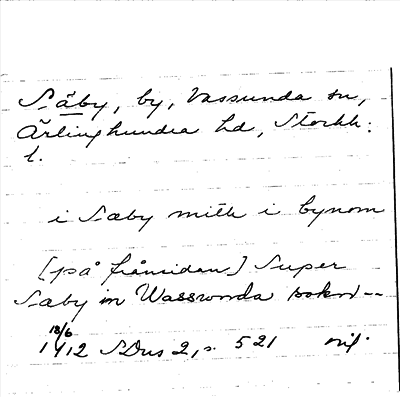 Säby, by, Vassunda sn,
Ärlinghundra hd, Stockh.
l.
i Sæby mith i bynom
[på frånsidan] Super
Sæby in Wasswnda sokn --
18/6
1412 SDns 2, s. 521 orig.